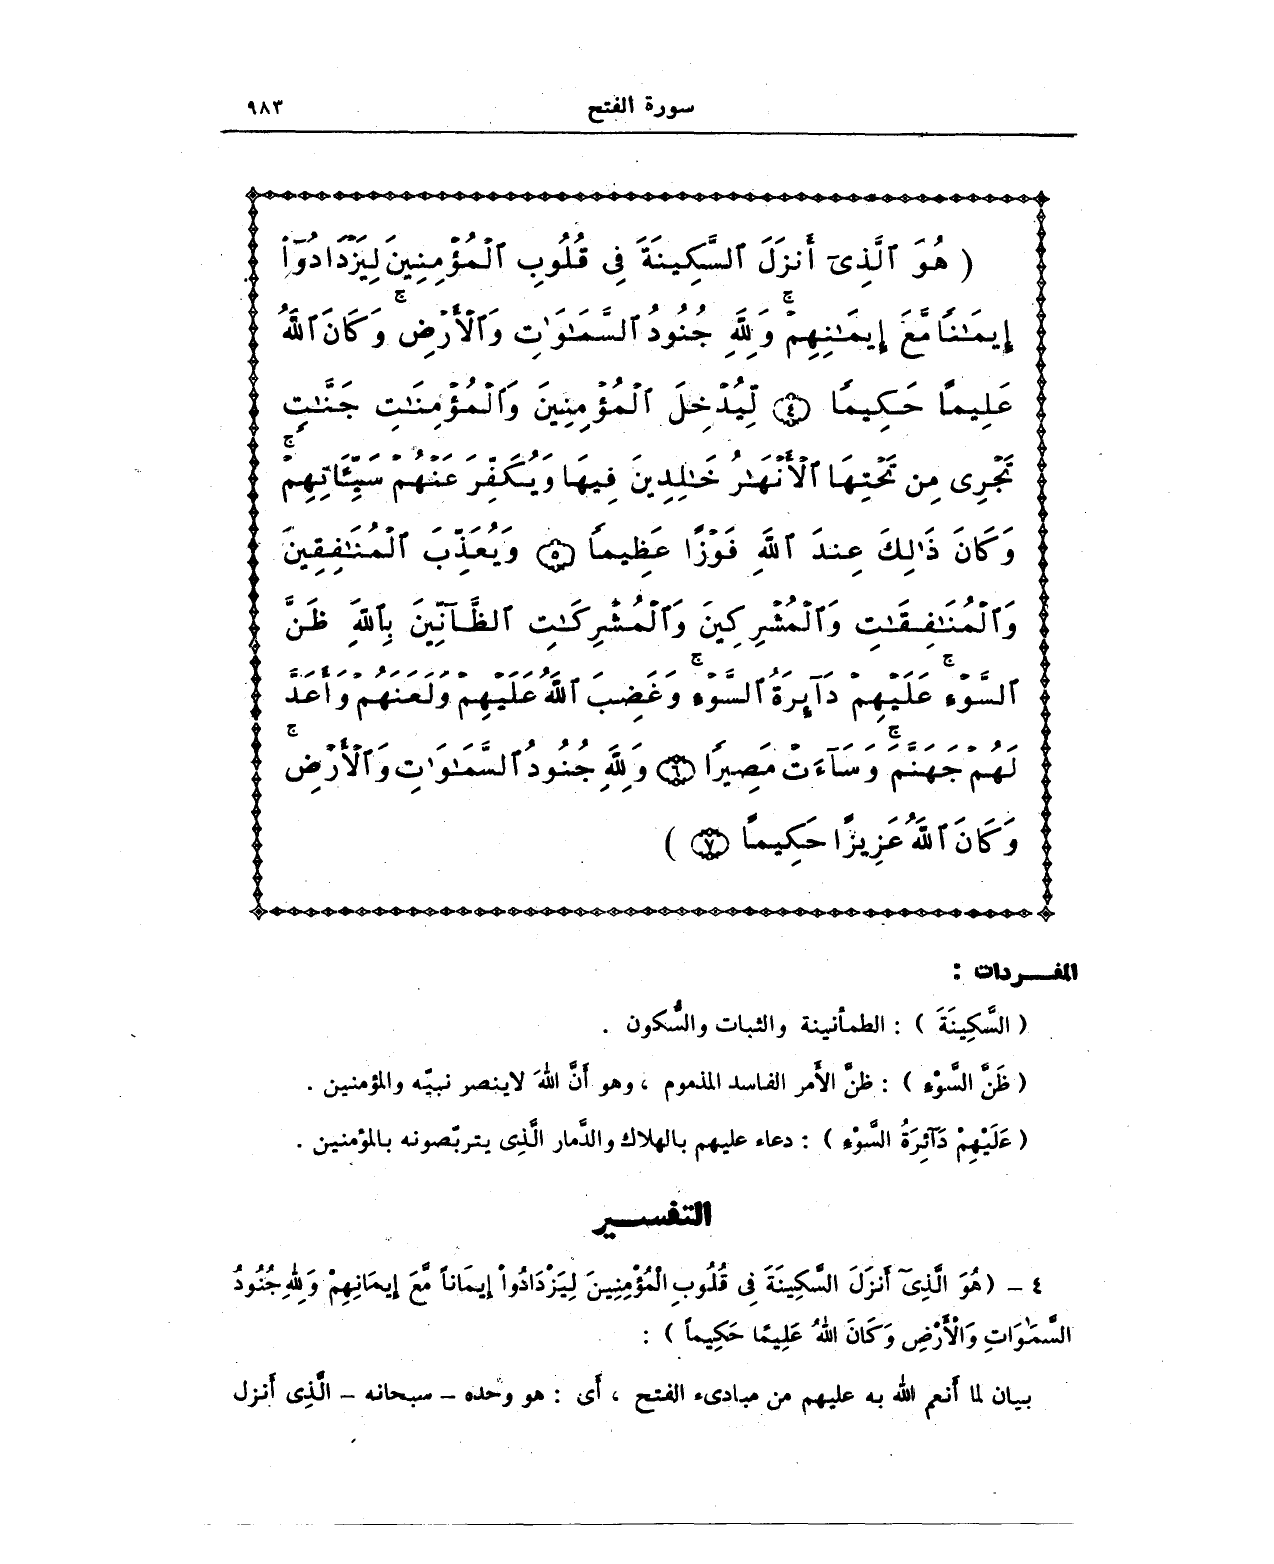 سورة الفتح ٩٨٣
( هُوَ ٱلَّذِىٓ أَنزَلَ ٱلسَّكِينَةَ فِى قُلُوبِ ٱلْمُؤْمِنِينَ لِيَزْدَادُوٓا۟
إِيمَـٰنًا مَّعَ إِيمَـٰنِهِمْ ۚ وَلِلَّهِ جُنُودُ ٱلسَّمَـٰوَٰتِ وَٱلْأَرْضِ ۚ وَكَانَ ٱللَّهُ
عَلِيمًا حَكِيمًا ﴿٤﴾ لِّيُدْخِلَ ٱلْمُؤْمِنِينَ وَٱلْمُؤْمِنَـٰتِ جَنَّـٰتٍ
تَجْرِى مِن تَحْتِهَا ٱلْأَنْهَـٰرُ خَـٰلِدِينَ فِيهَا وَيُكَفِّرَ عَنْهُمْ سَيِّـَٔاتِهِمْ ۚ
وَكَانَ ذَٰلِكَ عِندَ ٱللَّهِ فَوْزًا عَظِيمًا ﴿٥﴾ وَيُعَذِّبَ ٱلْمُنَـٰفِقِينَ
وَٱلْمُنَـٰفِقَـٰتِ وَٱلْمُشْرِكِينَ وَٱلْمُشْرِكَـٰتِ ٱلظَّآنِّينَ بِٱللَّهِ ظَنَّ
ٱلسَّوْءِ ۚ عَلَيْهِمْ دَآئِرَةُ ٱلسَّوْءِ ۚ وَغَضِبَ ٱللَّهُ عَلَيْهِمْ وَلَعَنَهُمْ وَأَعَدَّ
لَهُمْ جَهَنَّمَ ۚ وَسَآءَتْ مَصِيرًا ﴿٦﴾ وَلِلَّهِ جُنُودُ ٱلسَّمَـٰوَٰتِ وَٱلْأَرْضِ ۚ
وَكَانَ ٱللَّهُ عَزِيزًا حَكِيمًا ﴿٧﴾ )
المفـــردات :
( السَّكِينَةَ ) : الطمأنينة والثبات والسُّكون .
( ظَنَّ السَّوْءِ ) : ظنَّ الأَمر الفاسد المذموم ، وهو أَنَّ اللهَ لاينصر نبيّه والمؤمنين .
( عَلَيْهِمْ دَآئِرَةُ السَّوْءِ ) : دعاء عليهم بالهلاك والدَّمار الَّذِى يتربّصونه بالمؤمنين .
التفســـير
٤ – ( هُوَ الَّذِىٓ أَنزَلَ السَّكِينَةَ فِى قُلُوبِ الْمُؤْمِنِينَ لِيَزْدَادُواْ إِيمَاناً مَّعَ إِيمَانِهِمْ وَلِلهِ جُنُودُ
السَّمَٰوَاتِ وَالْأَرْضِ وَكَانَ اللهُ عَلِيمًا حَكِيماً ) :
بيان لما أَنعم الله به عليهم من مبادىء الفتح ، أَى : هو وحده – سبحانه – الَّذِى أَنزل